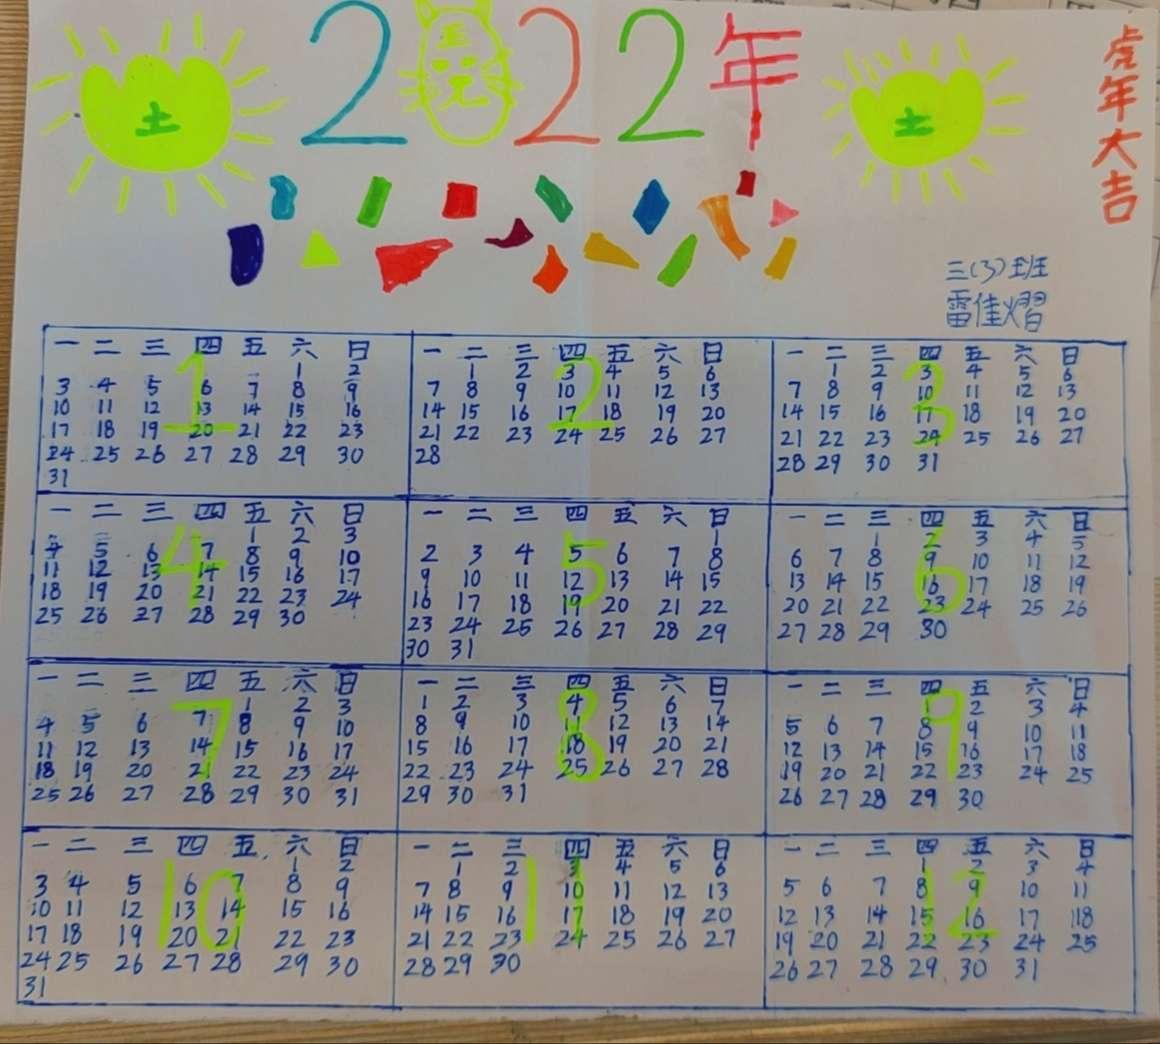 土
2022年
土
王
虎年大吉
三(3)班
雷佳熠
1
一 二 三 四 五 六 日
1 2
3 4 5 6 7 8 9
10 11 12 13 14 15 16
17 18 19 20 21 22 23
24 25 26 27 28 29 30
31
2
一 二 三 四 五 六 日
1 2 3 4 5 6
7 8 9 10 11 12 13
14 15 16 17 18 19 20
21 22 23 24 25 26 27
28
3
一 二 三 四 五 六 日
1 2 3 4 5 6
7 8 9 10 11 12 13
14 15 16 17 18 19 20
21 22 23 24 25 26 27
28 29 30 31
4
一 二 三 四 五 六 日
1 2 3
4 5 6 7 8 9 10
11 12 13 14 15 16 17
18 19 20 21 22 23 24
25 26 27 28 29 30
5
一 二 三 四 五 六 日
1
2 3 4 5 6 7 8
9 10 11 12 13 14 15
16 17 18 19 20 21 22
23 24 25 26 27 28 29
30 31
6
一 二 三 四 五 六 日
1 2 3 4 5
6 7 8 9 10 11 12
13 14 15 16 17 18 19
20 21 22 23 24 25 26
27 28 29 30
7
一 二 三 四 五 六 日
1 2 3
4 5 6 7 8 9 10
11 12 13 14 15 16 17
18 19 20 21 22 23 24
25 26 27 28 29 30 31
8
一 二 三 四 五 六 日
1 2 3 4 5 6 7
8 9 10 11 12 13 14
15 16 17 18 19 20 21
22 23 24 25 26 27 28
29 30 31
9
一 二 三 四 五 六 日
1 2 3 4
5 6 7 8 9 10 11
12 13 14 15 16 17 18
19 20 21 22 23 24 25
26 27 28 29 30
10
一 二 三 四 五 六 日
1 2
3 4 5 6 7 8 9
10 11 12 13 14 15 16
17 18 19 20 21 22 23
24 25 26 27 28 29 30
31
11
一 二 三 四 五 六 日
1 2 3 4 5 6
7 8 9 10 11 12 13
14 15 16 17 18 19 20
21 22 23 24 25 26 27
28 29 30
12
一 二 三 四 五 六 日
1 2 3 4
5 6 7 8 9 10 11
12 13 14 15 16 17 18
19 20 21 22 23 24 25
26 27 28 29 30 31